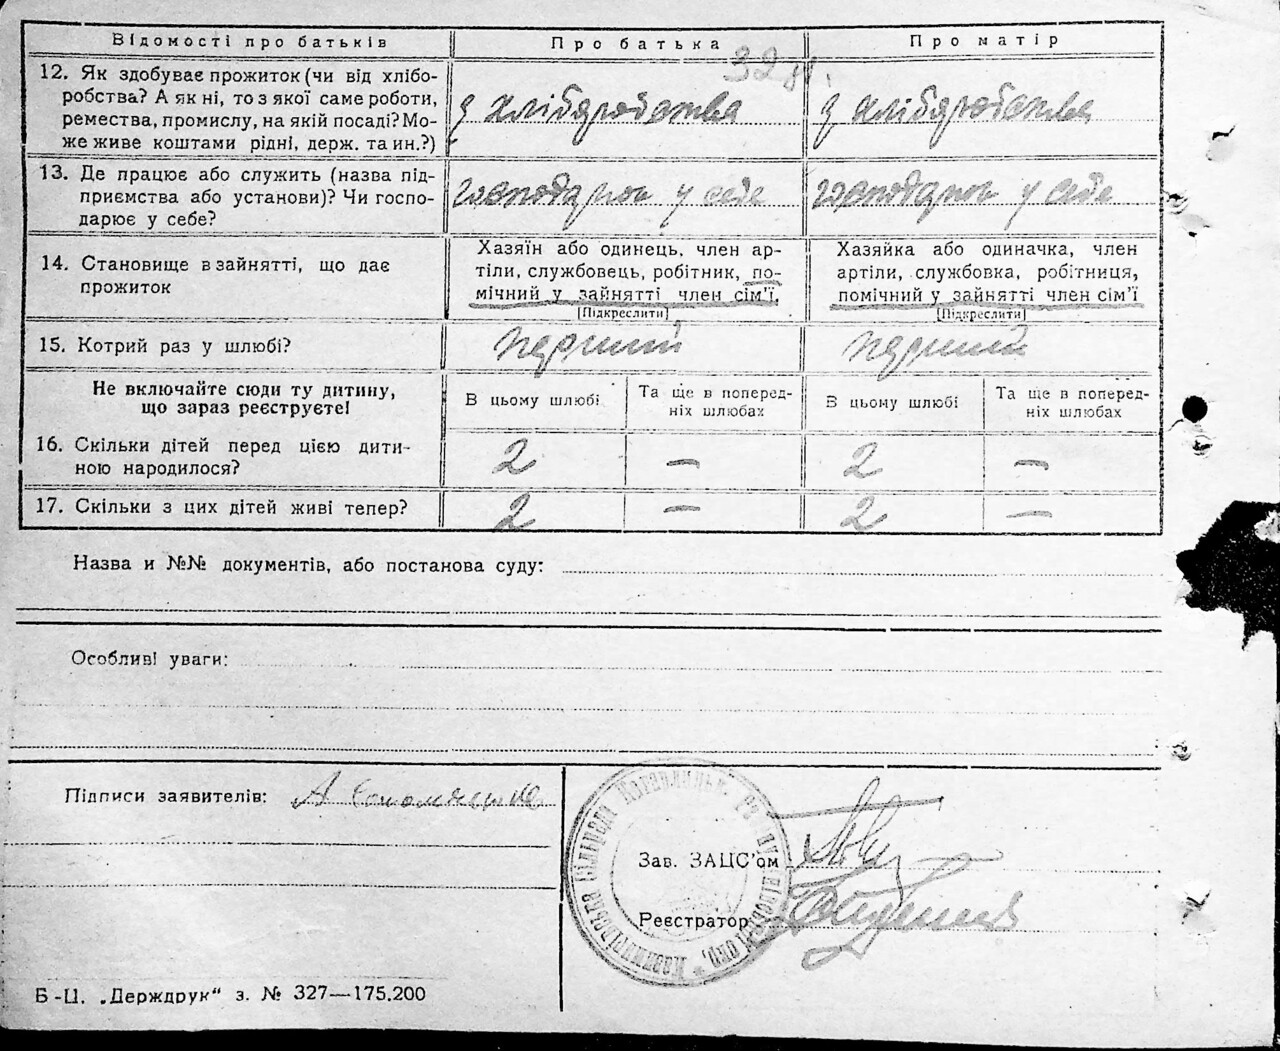 Відомості про батьків
Про батька
Про матір
32
12. Як здобуває прожиток (чи від хлібо-
робства? А як ні, то з якої саме роботи,
ремества, промислу, на якій посаді? Мо-
же живе коштами рідні, держ. та ин.?)
з хліборобства
з хліборобства
13. Де працює або служить (назва під-
приємства або установи)? Чи госпо-
дарює у себе?
господарює у себе
господарює у себе
14. Становище в зайнятті, що дає
прожиток
Хазяїн або одинець, член ар-
тіли, службовець, робітник, по-
мічний у зайнятті член сім'ї.
[Підкреслити]
Хазяйка або одиначка, член
артіли, службовка, робітниця,
помічний у зайнятті член сім'ї
[Підкреслити]
15. Котрий раз у шлюбі?
перший
перший
Не включайте сюди ту дитину,
що зараз реєструєте!
В цьому шлюбі
Та ще в поперед-
ніх шлюбах
В цьому шлюбі
Та ще в поперед-
ніх шлюбах
16. Скільки дітей перед цією дити-
ною народилося?
2 — 2 —
17. Скільки з цих дітей живі тепер?
2 — 2 —
Назва и №№ документів, або постанова суду:
Особливі уваги:
Підписи заявителів: А
Зав. ЗАЦС'ом
Реєстратор
Б-Ц. „Держдрук“ з. № 327—175.200